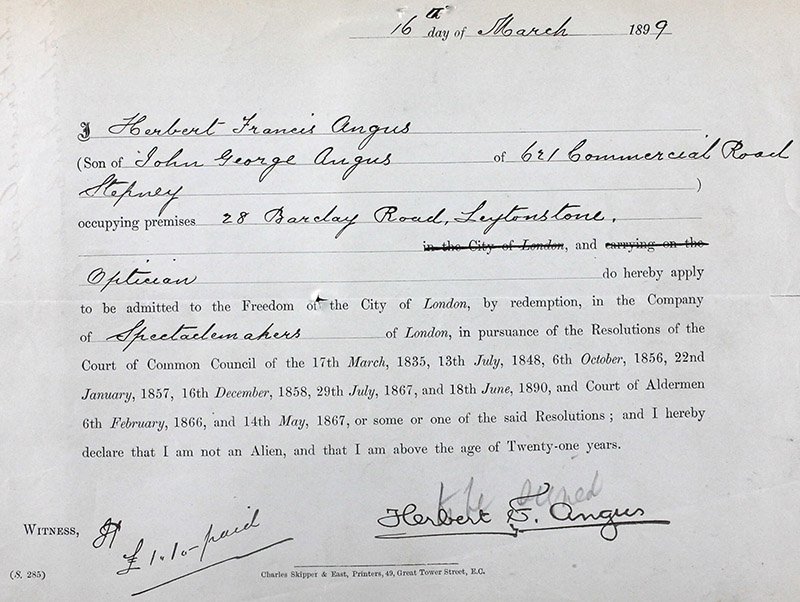 16th day of March 1899
I Herbert Francis Angus
(Son of John George Angus of 621 Commercial Road
Stepney )
occupying premises 28 Barclay Road, Leytonstone,
in the City of London, and carrying on the
Optician do hereby apply
to be admitted to the Freedom of the City of London, by redemption, in the Company
of Spectaclemakers of London, in pursuance of the Resolutions of the
Court of Common Council of the 17th March, 1835, 13th July, 1848, 6th October, 1856, 22nd
January, 1857, 16th December, 1858, 29th July, 1867, and 18th June, 1890, and Court of Aldermen
6th February, 1866, and 14th May, 1867, or some or one of the said Resolutions ; and I hereby
declare that I am not an Alien, and that I am above the age of Twenty-one years.
to be signed
Herbert F. Angus
WITNESS,
£1.1.- paid
(S. 285)
Charles Skipper & East, Printers, 49, Great Tower Street, E.C.